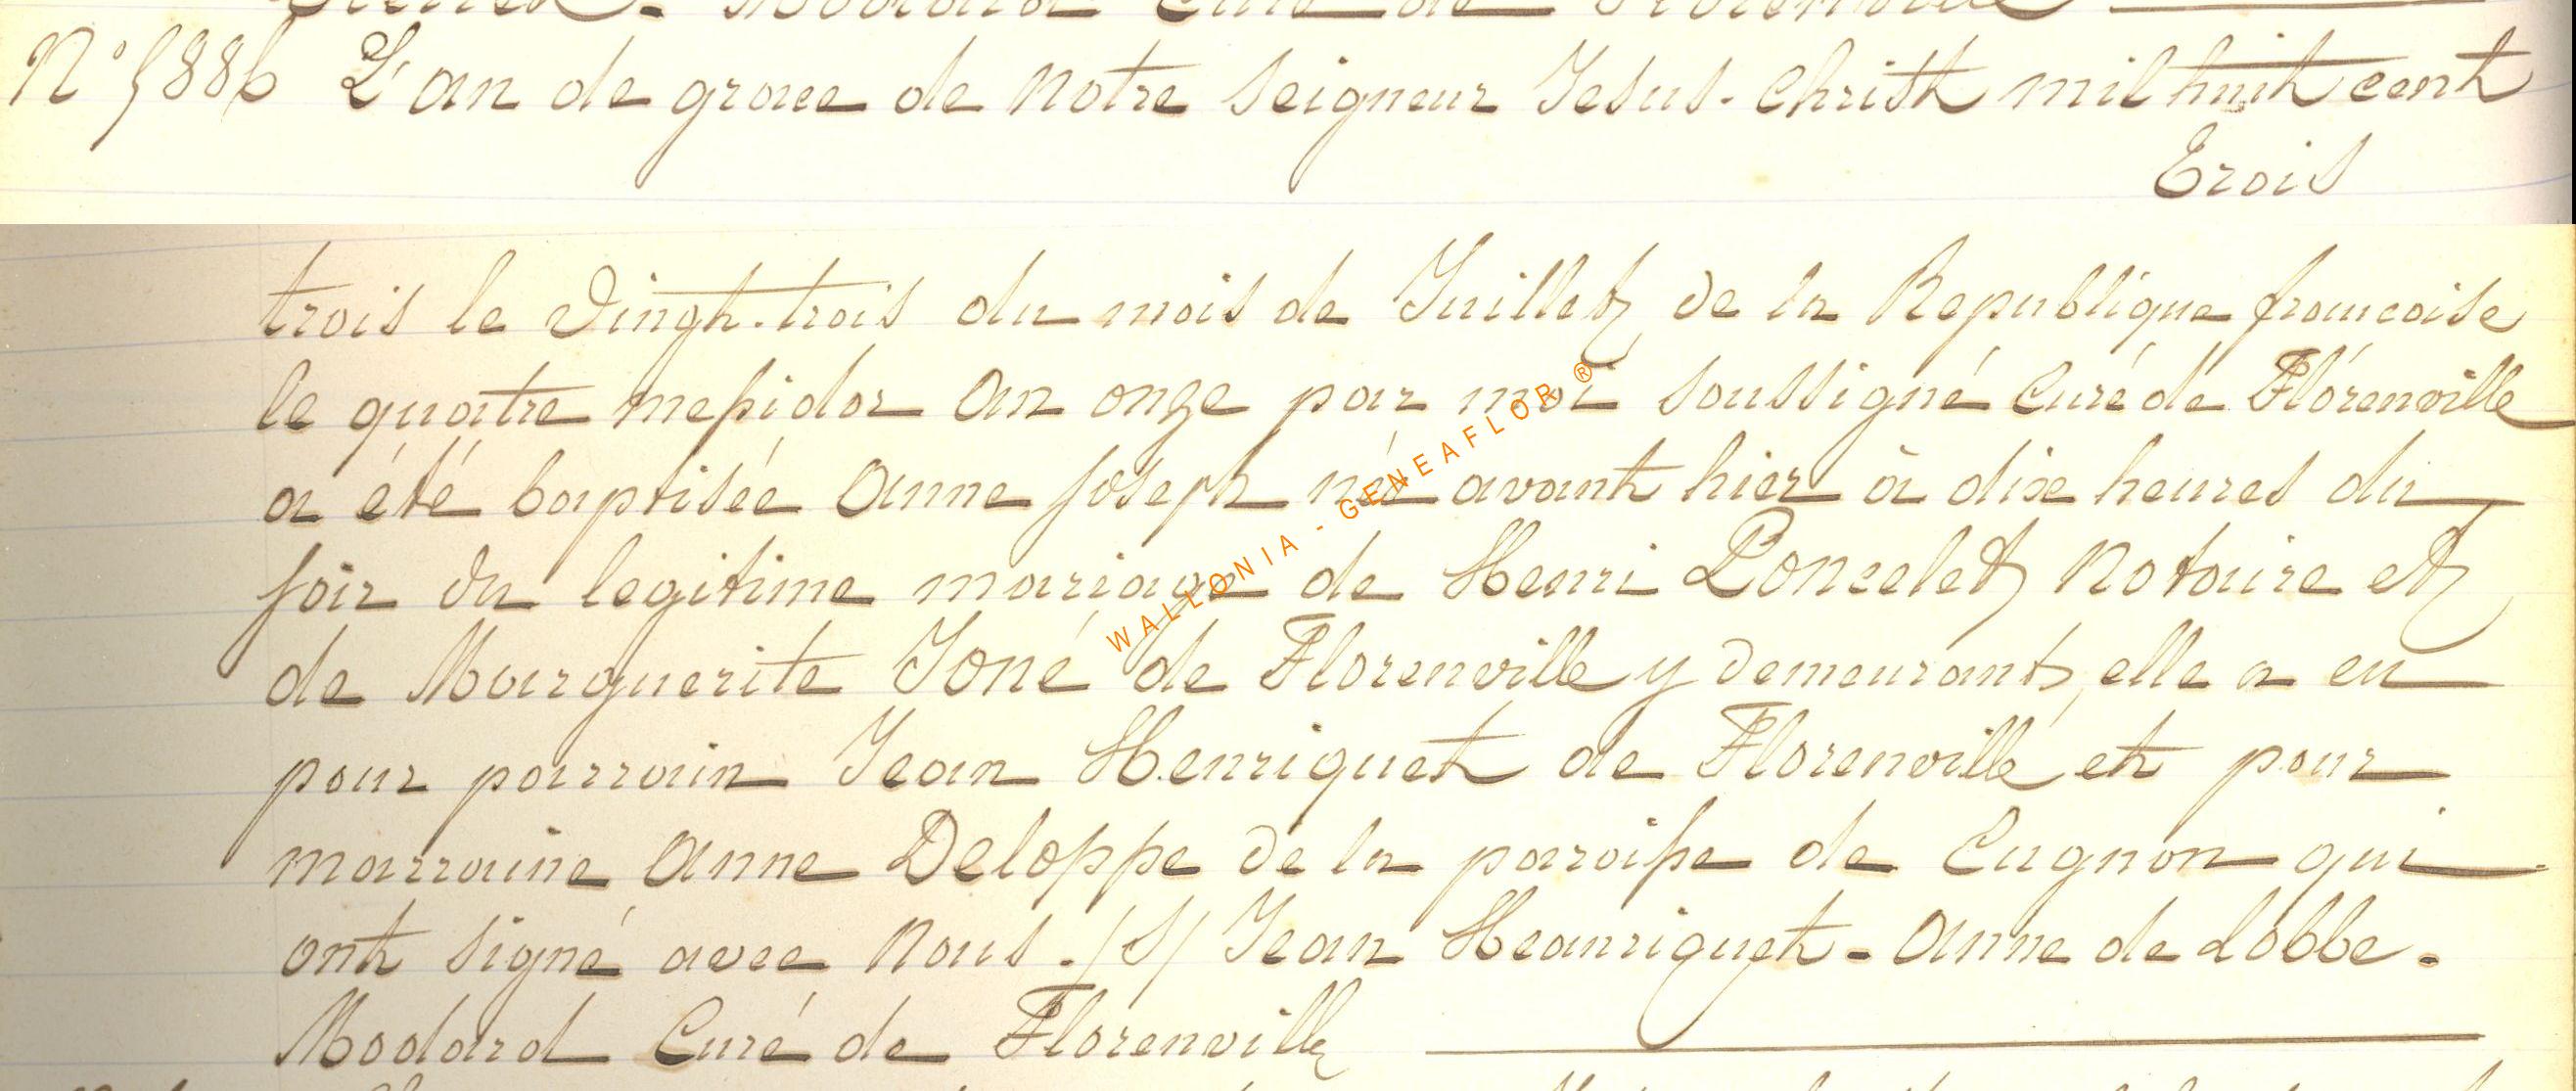 N° 5886 L'an de grace de Notre Seigneur Jesus-Christ mil huit cent
Trois
trois le vingt-trois du mois de Juillet de la Republique francoise
le quatre messidor an onze par moi soussigné Curé de Florenville
a été baptisée Anne Joseph née avant hier à dix heures du
soir du legitime mariage de Henri Poncelet Notaire et
de Marguerite Joné de Florenville y demeurants, elle a eu
pour parrain Jean Henriquet de Florenville et pour
marraine Anne Deloppe de la paroisse de Cugnon qui
ont signé avec Nous. /S/ Jean Heanriquet - Anne de Lobbe -
Modard Curé de Florenville
WALLONIA - GENEAFLOR ®